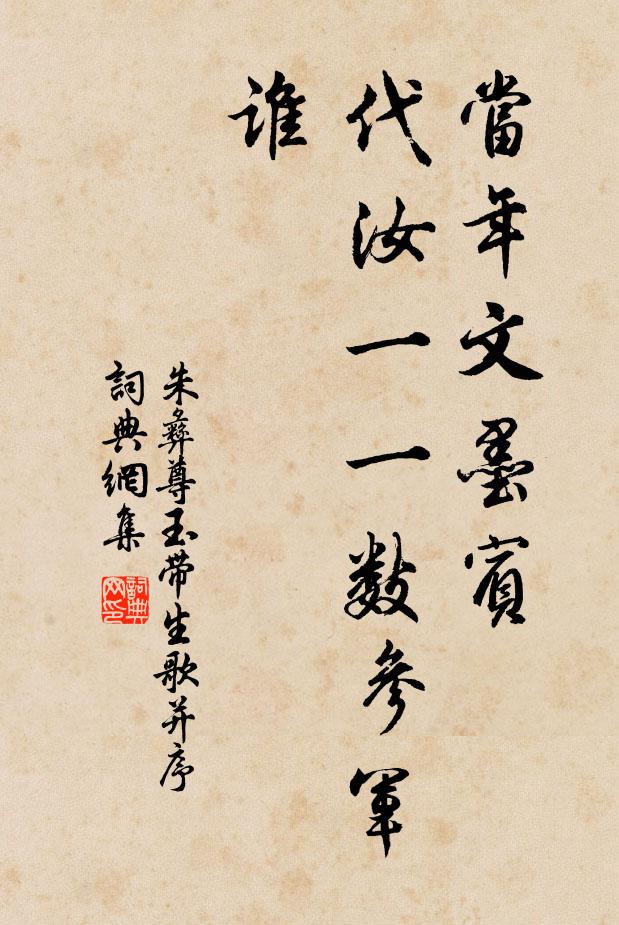 當年文墨賓
代汝一一數參軍
誰
朱彝尊玉带生歌并序
詞典網集
詞典
网印